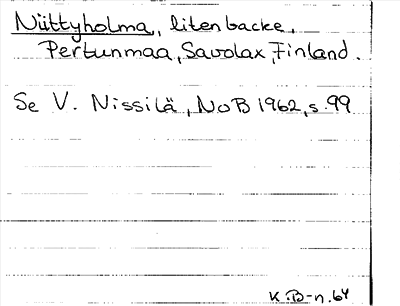 Niittyholma, liten backe,
Pertunmaa, Savolax, Finland.
Se V. Nissilä, NoB 1962, s. 99
K.B-n. 64